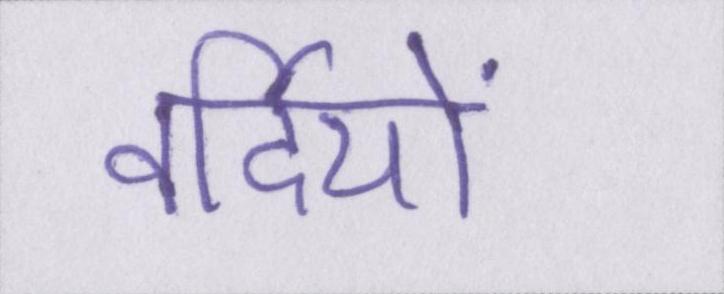 वर्दियों